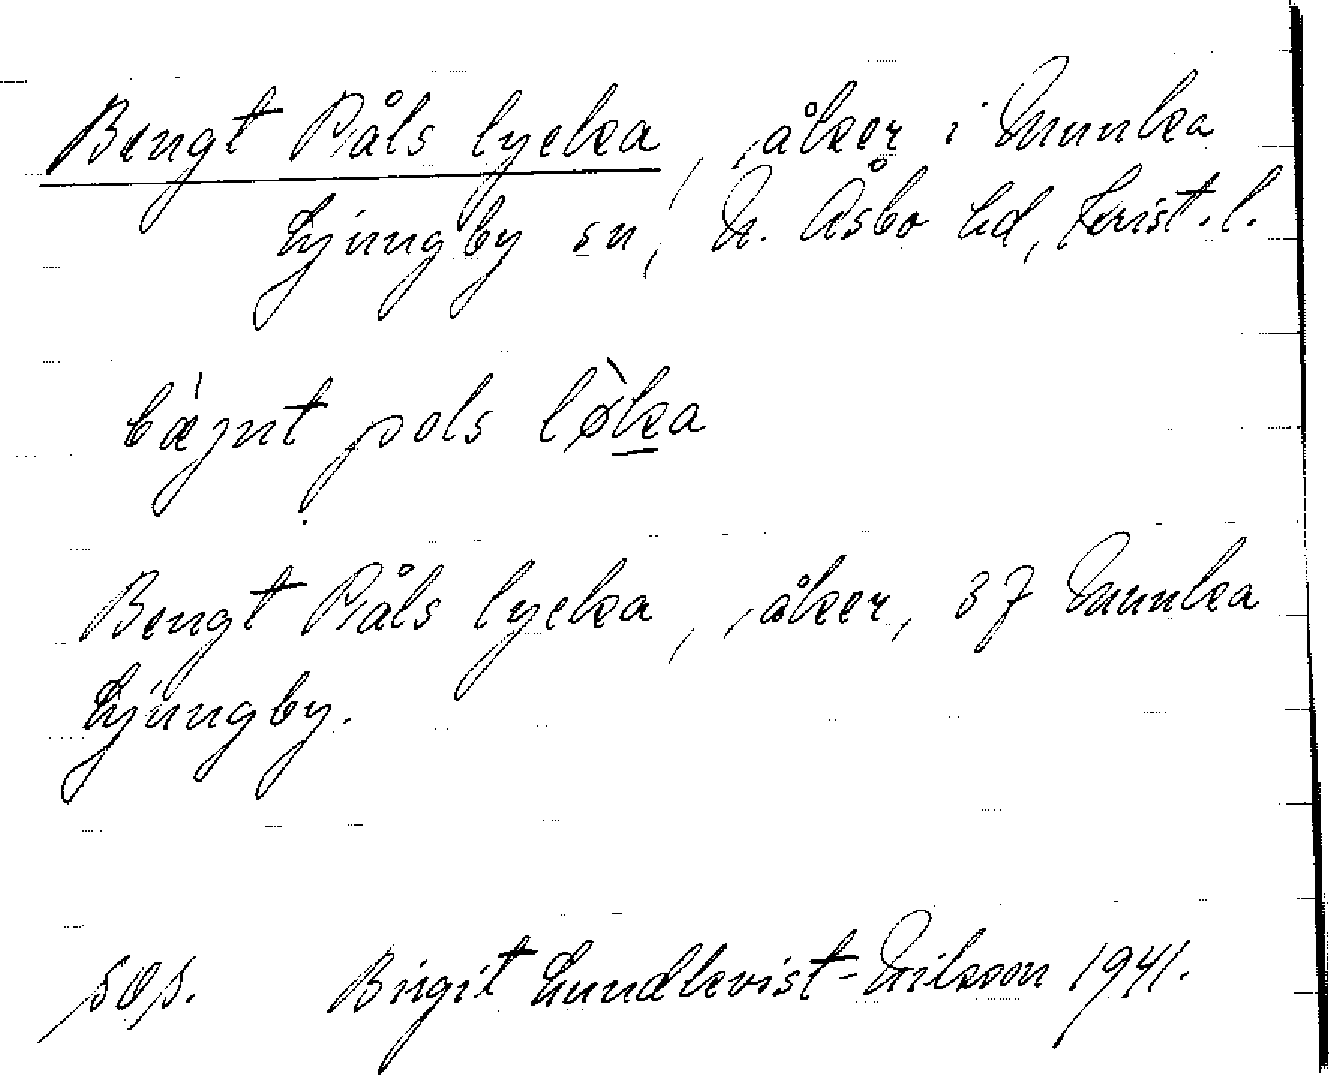 Bengt Påls lycka, åker i Munka
Ljungby sn, N. Åsbo hd, Krist. l.
bæ̀jnt pols lø̀ka
Bengt Påls lycka, åker, 37 Munka
Ljungby.
sep. Birgit Lundkvist-Nilsson 1941.